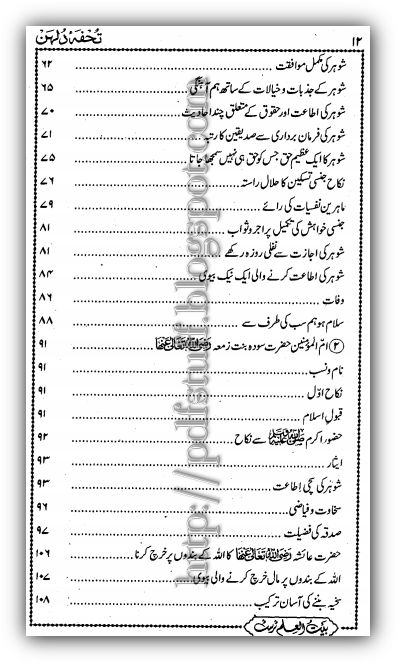 ۱۲ تحفۂ دُلہن
شوہر کی مکمل موافقت ۶۲
شوہر کے جذبات و خیالات کے ساتھ ہم آہنگی ۶۵
شوہر کی اطاعت اور حقوق کے متعلق چند احادیث ۷۰
شوہر کی فرمان برداری سے صدیقین کا رتبہ ۷۱
شوہر کا ایک عظیم حق جس کو حق ہی نہیں سمجھا جاتا ۷۵
نکاح جنسی تسکین کا حلال راستہ ۷۶
ماہرین نفسیات کی رائے ۷۹
جنسی خواہش کی تکمیل پر اجر و ثواب ۸۱
شوہر کی اجازت سے نفلی روزہ رکھے ۸۱
شوہر کی اطاعت کرنے والی ایک نیک بیوی ۸۴
وفات ۸۶
سلام ہو ہم سب کی طرف سے ۸۸
۲ ام المؤمنین حضرت سودہ بنت زمعہ رضی اللہ تعالیٰ عنہا ۹۱
نام و نسب ۹۱
نکاح اوّل ۹۱
قبولِ اسلام ۹۱
حضور اکرم صلی اللہ علیہ وسلم سے نکاح ۹۲
ایثار ۹۳
شوہر کی سچی اطاعت ۹۳
سخاوت و فیاضی ۹۶
صدقہ کی فضیلت ۹۷
حضرت عائشہ رضی اللہ تعالیٰ عنہا کا اللہ کے بندوں پر خرچ کرنا ۱۰۶
اللہ کے بندوں پر مال خرچ کرنے والی بیوی ۱۰۷
سخیہ بننے کی آسان ترکیب ۱۰۸
بیت العلم ٹرسٹ
http://pdfstuff.blogspot.com